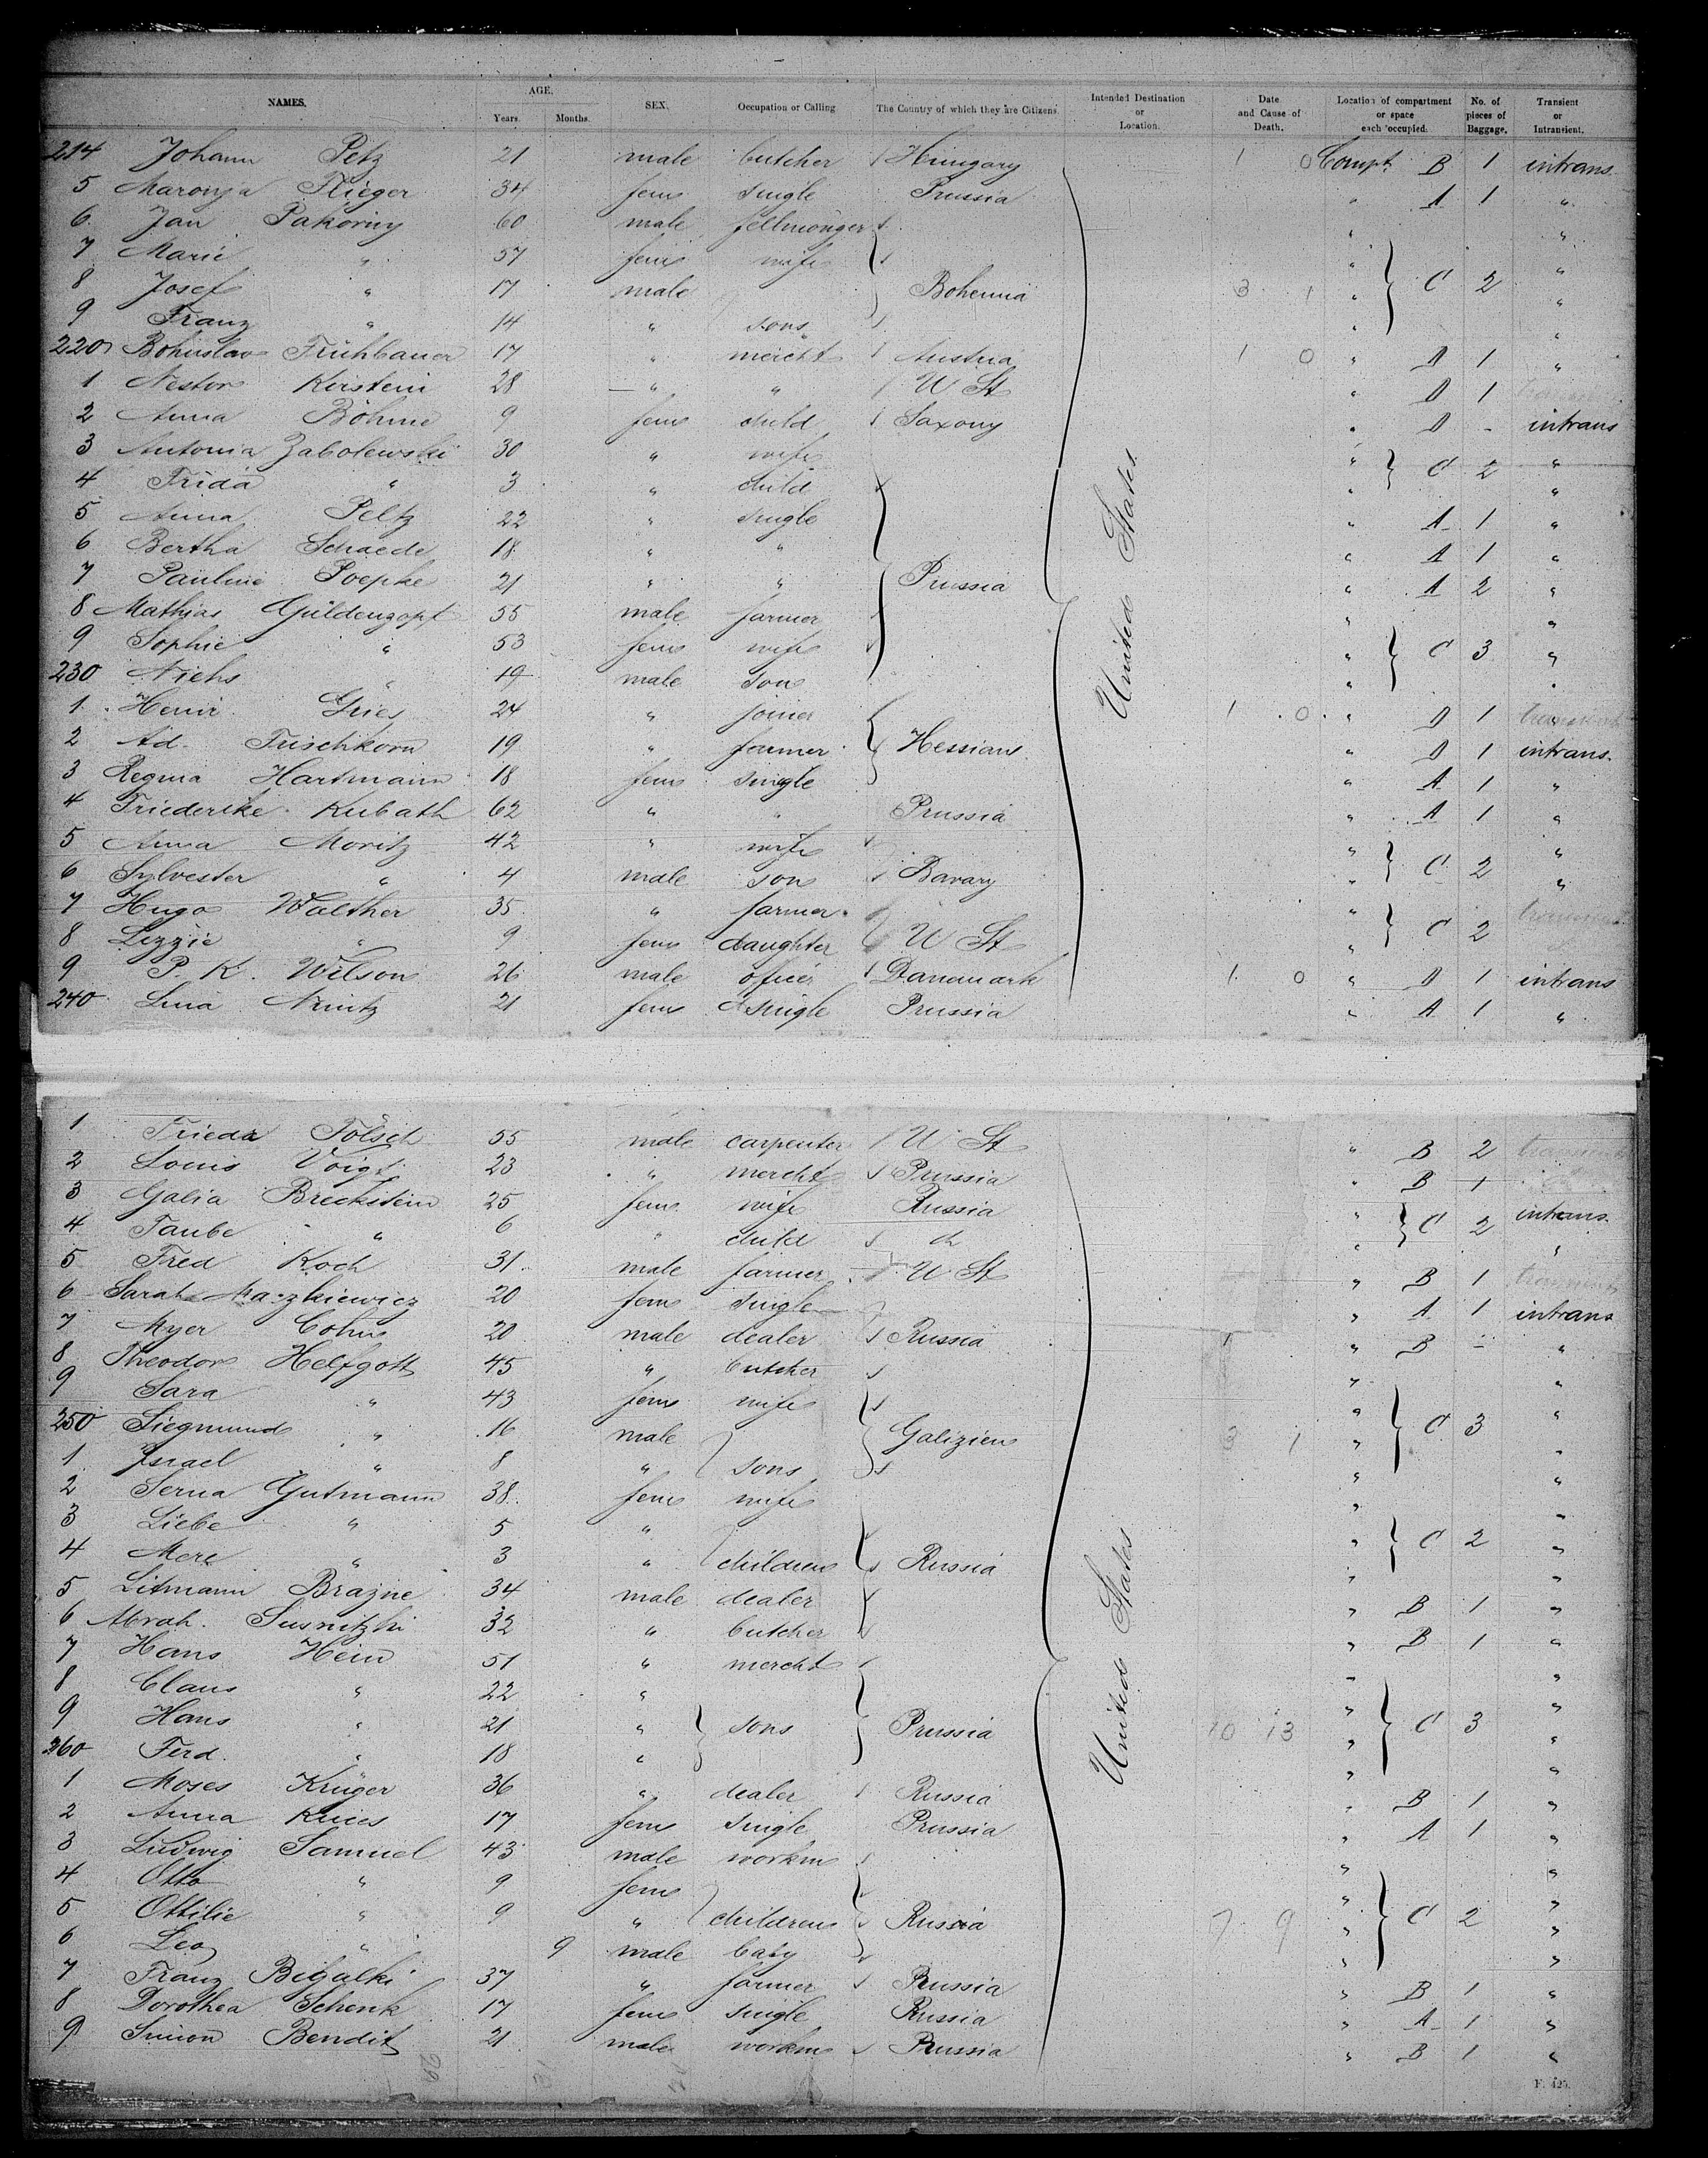 NAMES. AGE. Years. Months. SEX. Occupation or Calling The Country of which they are Citizens. Intended Destination or Location. Date and Cause of Death. Location of compartment or space each occupied. No. of pieces of Baggage. Transient or Intransient.
214 Johann Petz 21 male butcher Hungary 1 0 Compt. B 1 intrans.
5 Maronya Flieger 34 fem single Prussia " A 1 "
6 Jan Pakorny 60 male fellmonger " "
7 Marie " 57 fem wife " "
8 Josef " 17 male Bohemia 3 1 " C 2 "
9 Franz " 14 " sons " "
220 Bohuslav Frühbauer 17 " mercht Austria 1 0 " D 1 "
1 Nestor Kirstein 28 " " U St " D 1
2 Anna Böhme 9 fem child Saxony " D - intrans
3 Antonia Zabolewski 30 " wife " C 2 "
4 Frida " 3 " child " "
5 Anna Peltz 22 " single " A 1 "
6 Bertha Schaede 18 " " " A 1 "
7 Pauline Poepke 21 " " Prussia " A 2 "
8 Mathias Güldenzopf 55 male farmer " "
9 Sophie " 53 fem wife " C 3 "
230 Niels " 19 male son " "
1 Henir Gries 24 " joiner 1 0 " D 1
2 Ad. Frischkorn 19 " farmer Hessians " D 1 intrans.
3 Regina Hartmann 18 fem single " A 1 "
4 Friederike Kubath 62 " " Prussia " A 1 "
5 Anna Moritz 42 " wife " "
6 Sylvester " 4 male son Bavary " C 2 "
7 Hugo Walther 35 " farmer "
8 Lizzie " 9 fem daughter U St " C 2
9 P. K. Wilson 26 male officer Danemark 1 0 " D 1 intrans
240 Lina Nrintz 21 fem single Prussia " A 1 "
United States
1 Frieda Tölsch 55 male carpenter U St " B 2
2 Louis Voigt 23 " mercht Prussia " B 1
3 Galia Breckstein 25 fem wife Russia " C 2 intrans.
4 Taube " 6 " child do " "
5 Fred Koch 31 male farmer U St " B 1
6 Sarah Mazkiewicz 20 fem single " A 1 intrans
7 Myer Cohn 20 male dealer Russia 1 " B - "
8 Theodor Helfgott 45 " butcher " "
9 Sara " 43 fem wife " "
250 Siegmund " 16 male Galizien 3 1 " C 3 "
1 Israel " 8 " sons " "
2 Serna Gutmann 38 fem wife " "
3 Liebe " 5 " " C 2 "
4 Mere " 3 " children Russia " "
5 Litmann Brazne 34 male dealer " B 1 "
6 Abrah. Susnitzki 32 " butcher " B 1 "
7 Hans Hein 51 " mercht " "
8 Claus " 22 " " "
9 Hans " 21 " sons Prussia 10 13 " C 3 "
260 Ferd. " 18 " " "
1 Moses Krüger 36 " dealer Russia " B 1 "
2 Anna Knies 17 fem single Prussia " A 1 "
3 Ludwig Samuel 43 male workm " "
4 Otto " 9 fem " "
5 Ottilie " 9 " children Russia 7 9 " C 2 "
6 Leo " 9 male baby " "
7 Franz Bigalki 37 " farmer Prussia " B 1 "
8 Dorothea Schenk 17 fem single Russia " A 1 "
9 Simon Bendit 21 male workm Prussia " B 1 "
United States